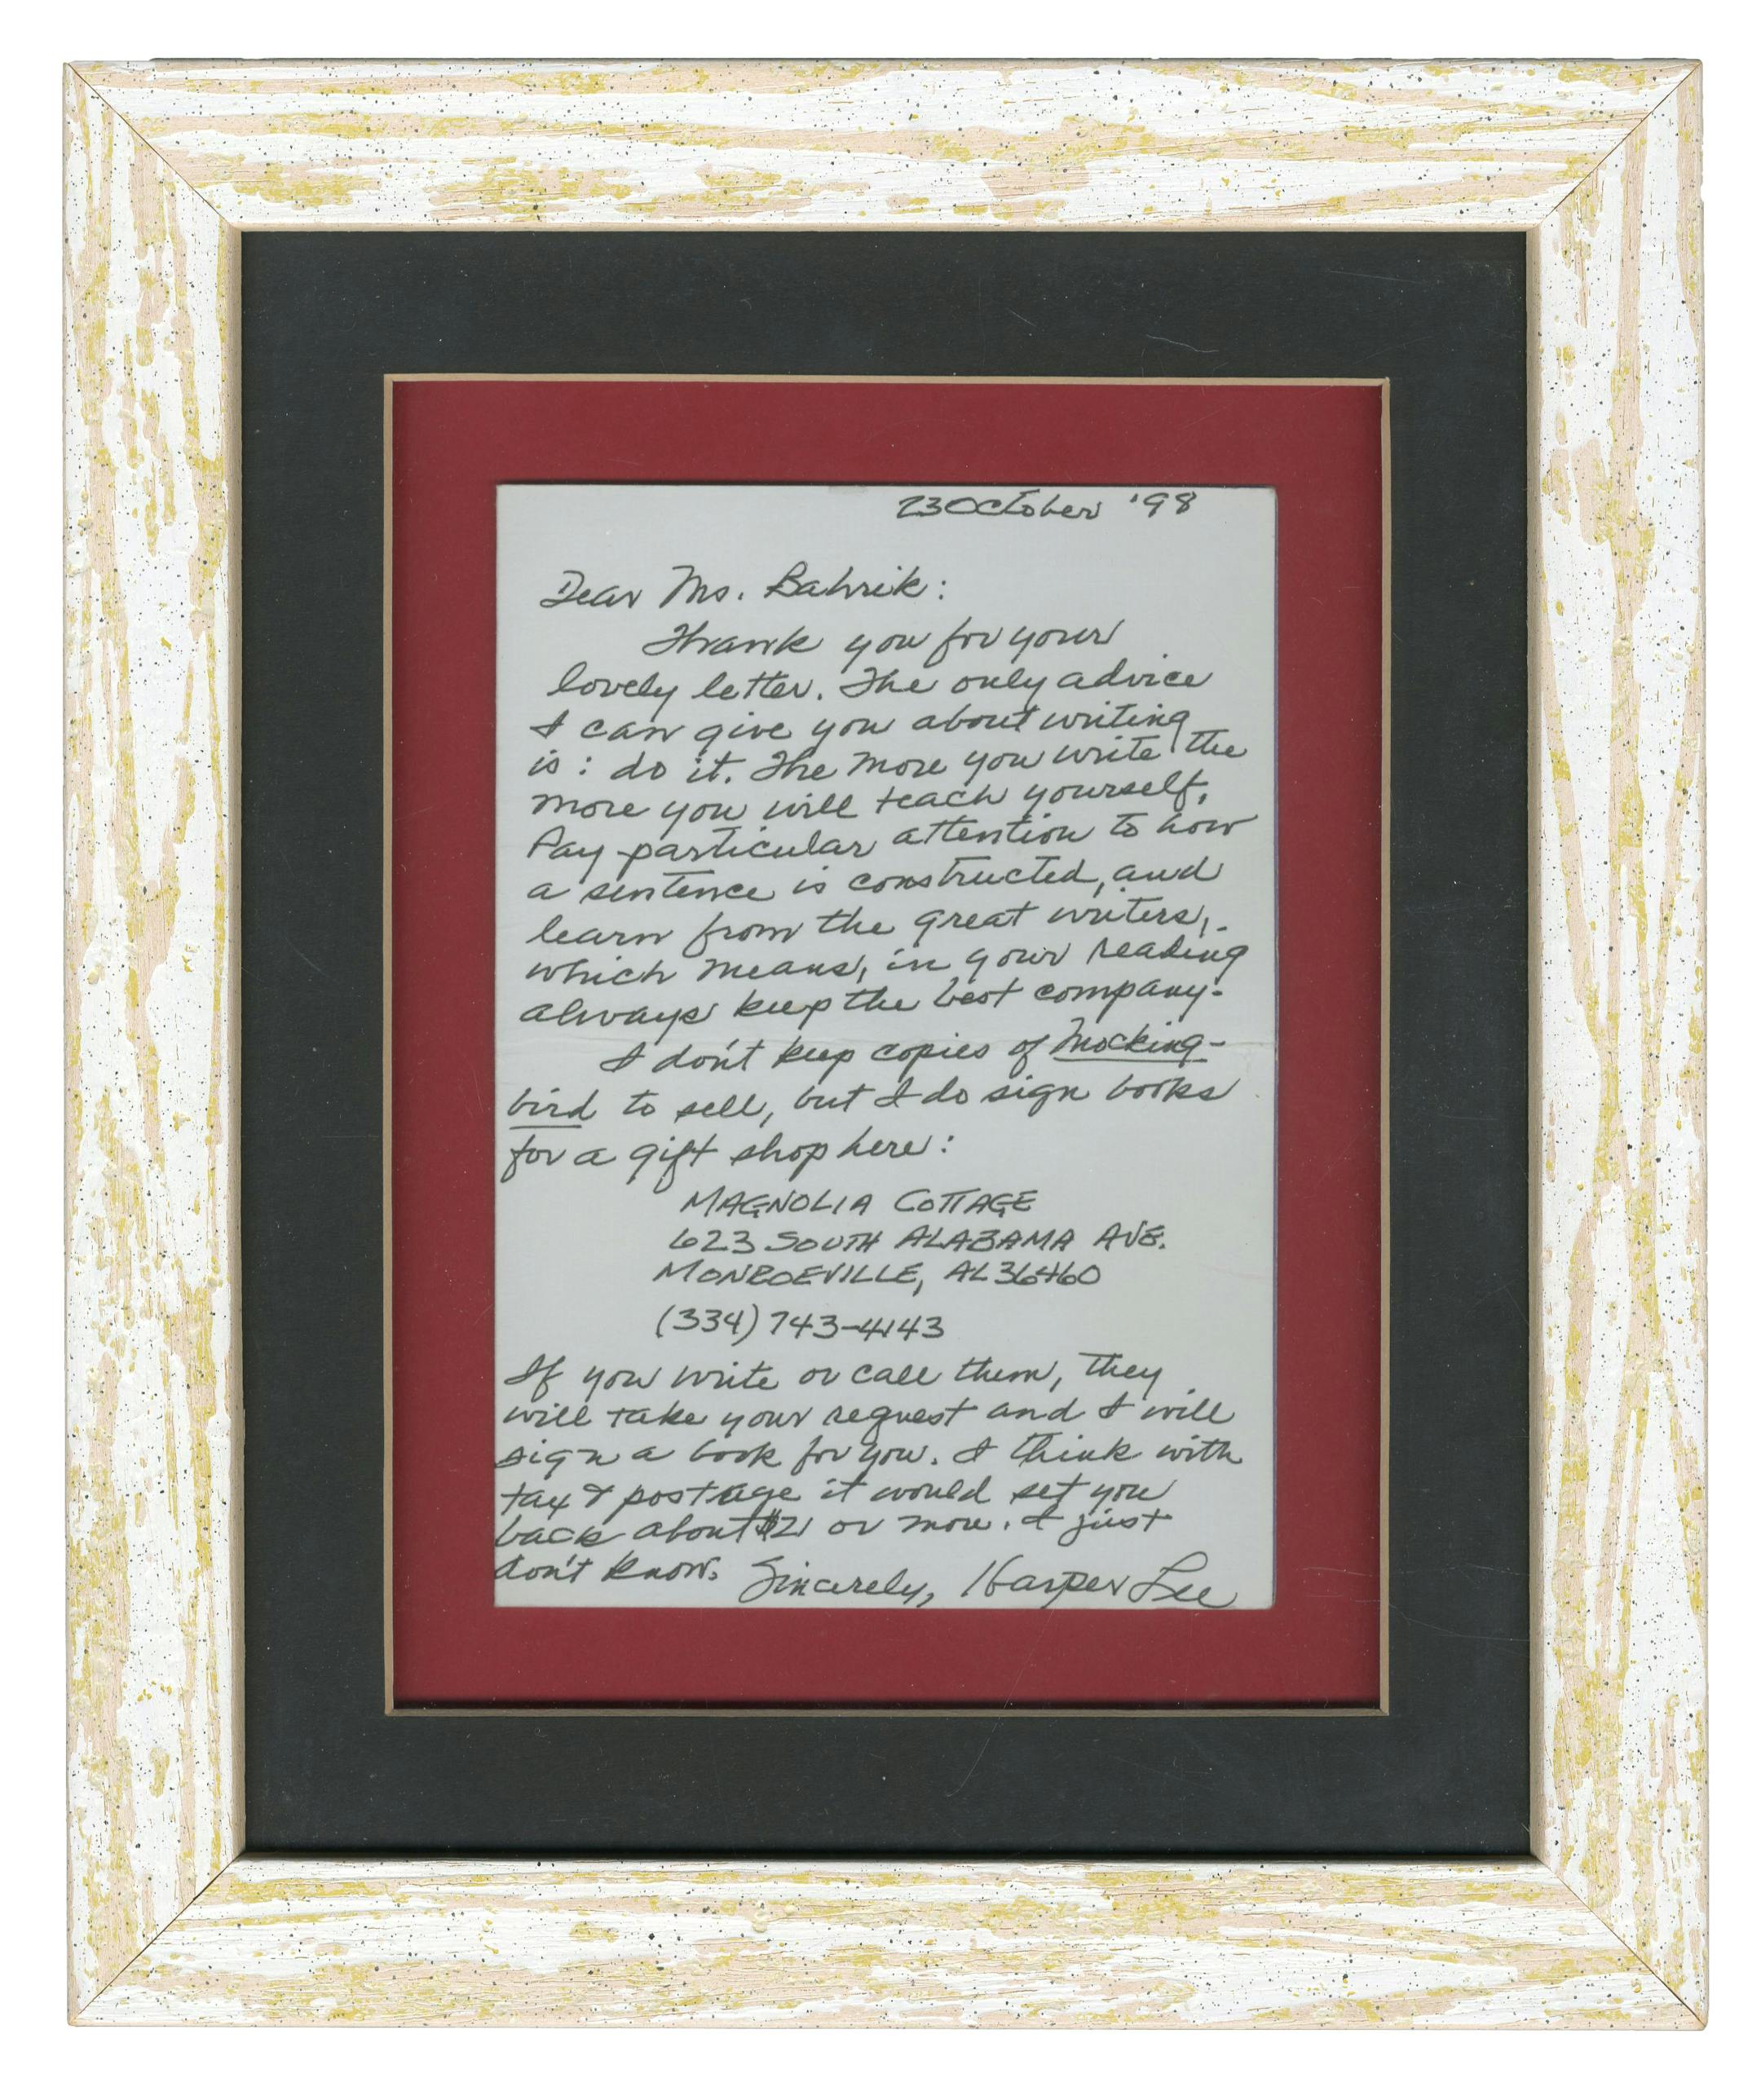 23 October '98
Dear Ms. Bahrik:
Thank you for your
lovely letter. The only advice
I can give you about writing
is: do it. The more you write the
more you will teach yourself.
Pay particular attention to how
a sentence is constructed, and
learn from the great writers,
which means, in your reading
always keep the best company.
I don't keep copies of Mocking-
bird to sell, but I do sign books
for a gift shop here:
MAGNOLIA COTTAGE
623 SOUTH ALABAMA AVE.
MONROEVILLE, AL 36460
(334) 743-4143
If you write or call them, they
will take your request and I will
sign a book for you. I think with
tax & postage it would set you
back about $21 or more. I just
don't know. Sincerely, Harper Lee